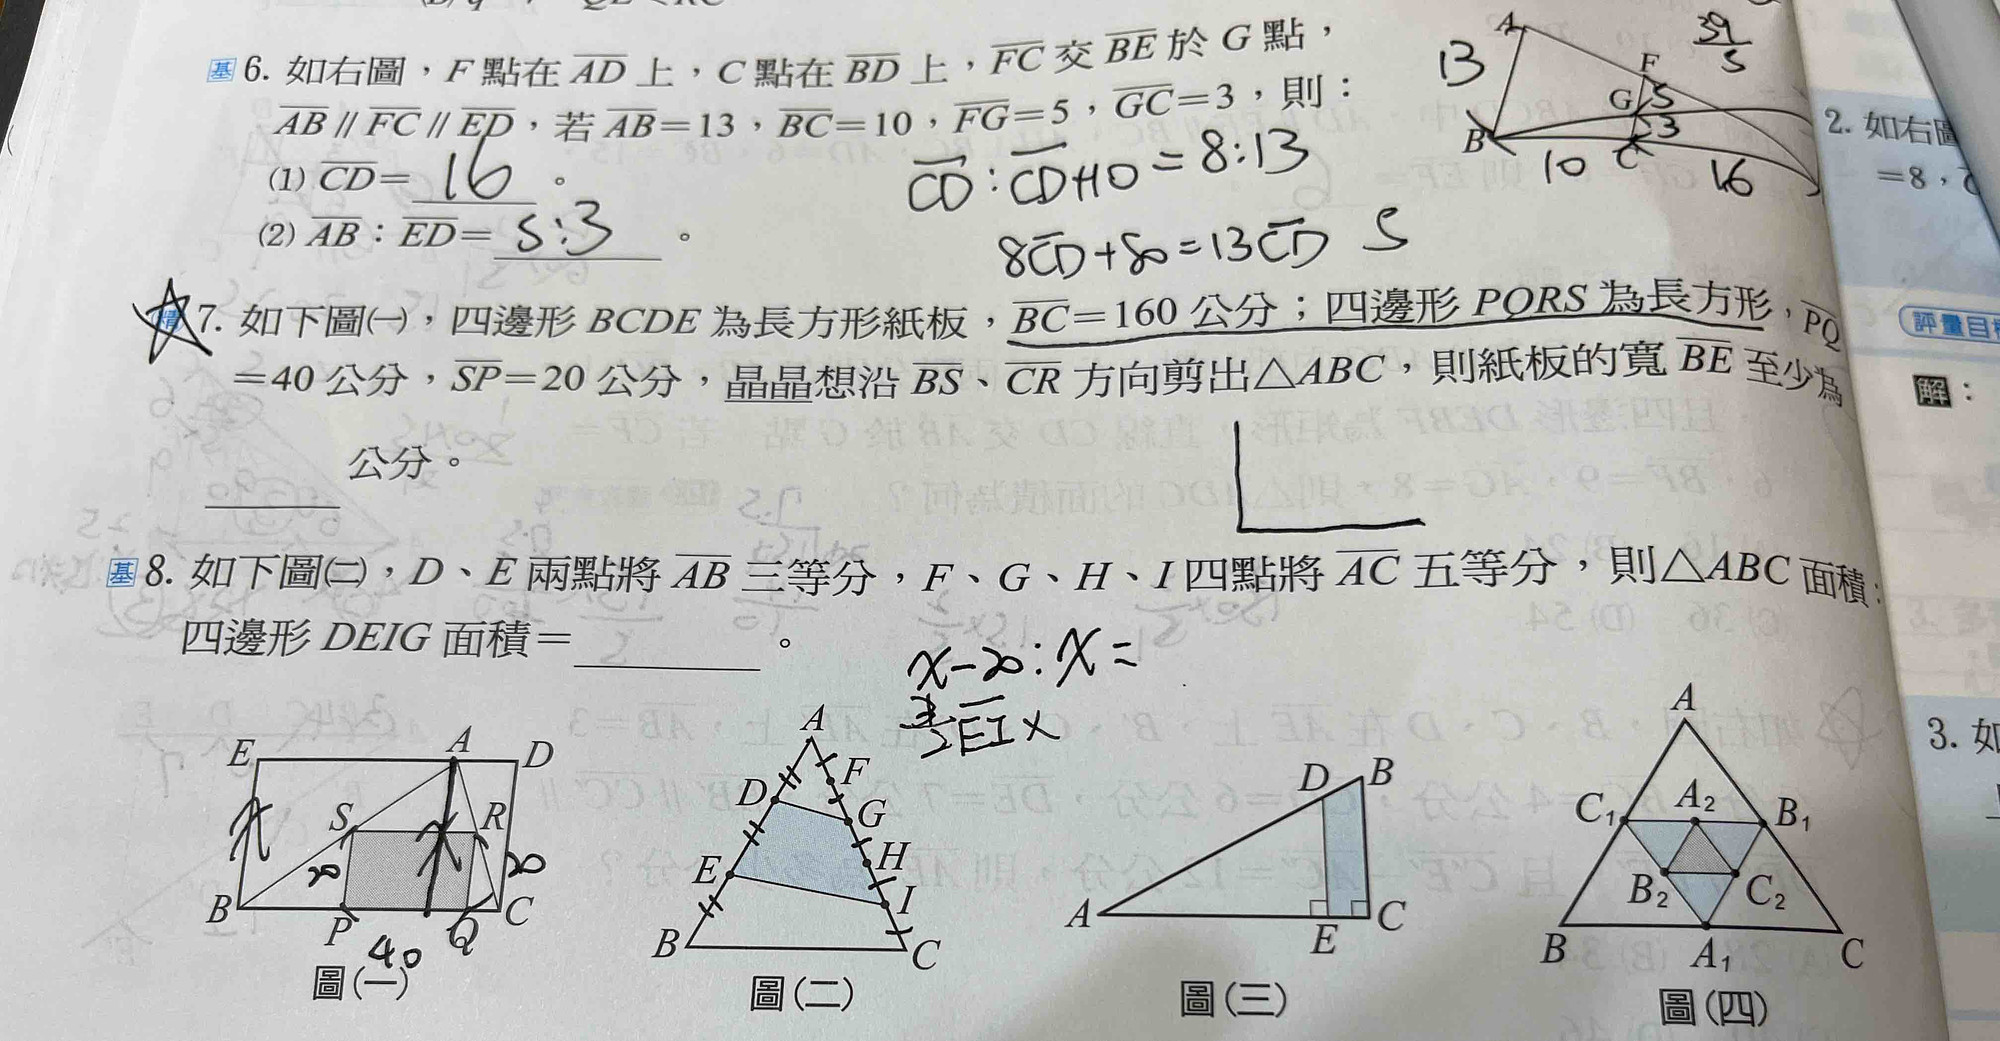 基 6. 如右圖，F 點在 AD 上，C 點在 BD 上，FC 交 BE 於 G 點，
AB // FC // ED，若 AB=13，BC=10，FG=5，GC=3，則：
(1) CD= 16 。
(2) AB：ED= 5:3 。
CD : CD+10 = 8:13
8CD+80=13CD 5
A
39/5
13
F
G 5
B
3
C
10
16
7. 如下圖(一)，四邊形 BCDE 為長方形紙板，BC=160 公分；四邊形 PQRS 為長方形，PQ
=40 公分，SP=20 公分，晶晶想沿 BS、CR 方向剪出△ABC，則紙板的寬 BE 至少為
公分。
基 8. 如下圖(二)，D、E 兩點將 AB 三等分，F、G、H、I 四點將 AC 五等分，則△ABC 面積：
四邊形 DEIG 面積= 。
x-20 : x =
EI x
E A D
x S x R
20 20
B P Q C
40
圖(一)
A
D F
G
E H
I
B C
圖(二)
D B
A E C
圖(三)
A
C1 A2 B1
B2 C2
B A1 C
圖(四)
2. 如右圖
=8，
評量目標
解：
3. 如